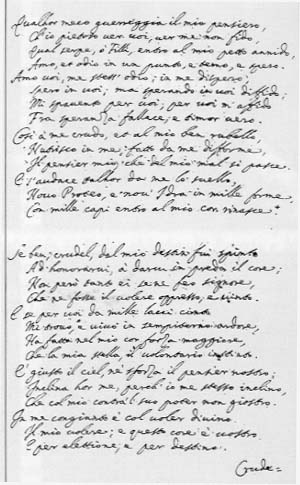 Qualhor meco guerreggia il mio pensiero,
Ch'io pietoso ver voi, ver me non fido
Qual serpe, o Filli, entro al mio petto annido,
Amo, et odio in un punto, e temo, e spero.
Amo voi, me stess'odio; in me dispero;
Spero in voi; ma sperando in voi diffido;
Mi spavento per voi; per voi m'affido
Fra speranza fallace, e timor vero.
Così a me crudo, et al mio ben rubello,
Nutrisco in me, fatto da me difforme,
Il pensier mio, che del mio mal si pasce.
E s'audace talhor da me lo svello,
Novo Proteo, e nov'Idra in mille forme,
Con mille capi entro al mio cor rinasce.
Se ben, crudel, dal mio destin fui spinto
Ad honorarvi, à darvi in preda il core;
Non però tanto ei se ne feo signore,
Che ne fosse il volere oppresso, e vinto.
E se per voi da mille lacci cinto
Mi trovo, e vivo in sempiterno ardore,
Ha fatto nel mio cor forza maggiore,
Che la mia stella, il volontario instinto.
È giusto il ciel, nè sforza il pensier nostro;
Inclina hor me, perch'io me stesso inclino,
Che col mio contra'l suo poter non giostro.
In me congiunto è col voler divino
Il mio volere; e questo core è vostro
E per elettione, e per destino.
Cruda=